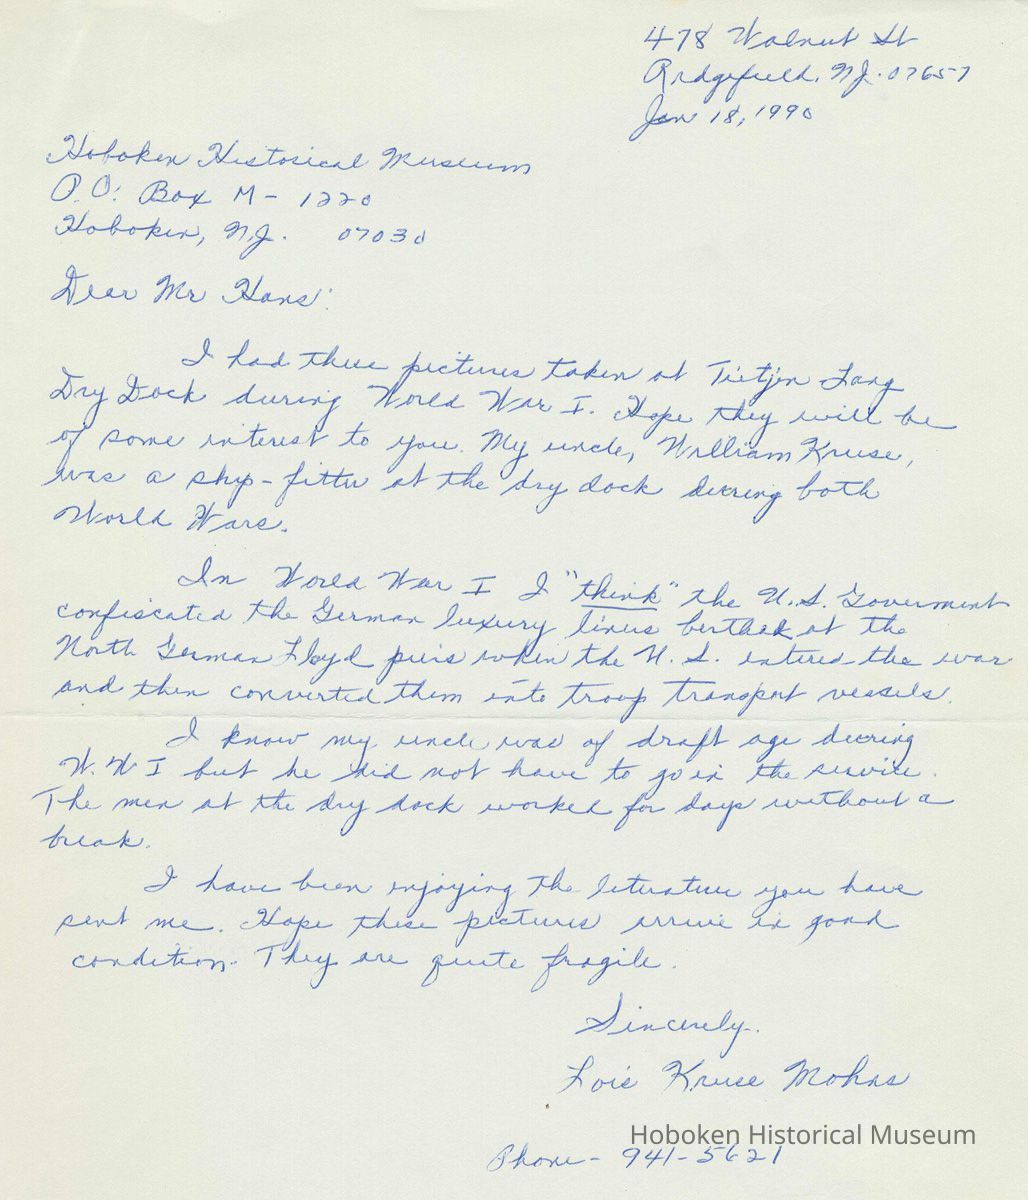 478 Walnut St
Ridgefield, N.J. 07657
Jan 18, 1990
Hoboken Historical Museum
P.O. Box M-1220
Hoboken, N.J. 07030
Dear Mr Hans:
I had these pictures taken at Tietjen Lang
Dry Dock during World War I. Hope they will be
of some interest to you. My uncle, William Kruse,
was a ship-fitter at the dry dock during both
World Wars.
In World War I I "think" the U.S. Goverment
confiscated the German luxury lines berthed at the
North German Lloyd piers when the U.S. entered the war
and then converted them into troop transport vessels.
I know my uncle was of draft age during
W.W I but he did not have to go in the service.
The men at the dry dock worked for days without a
break.
I have been enjoying the literature you have
sent me. Hope these pictures arrive in good
condition. They are quite fragile.
Sincerely.
Lois Kruse Mohns
Hoboken Historical Museum
Phone - 941-5621